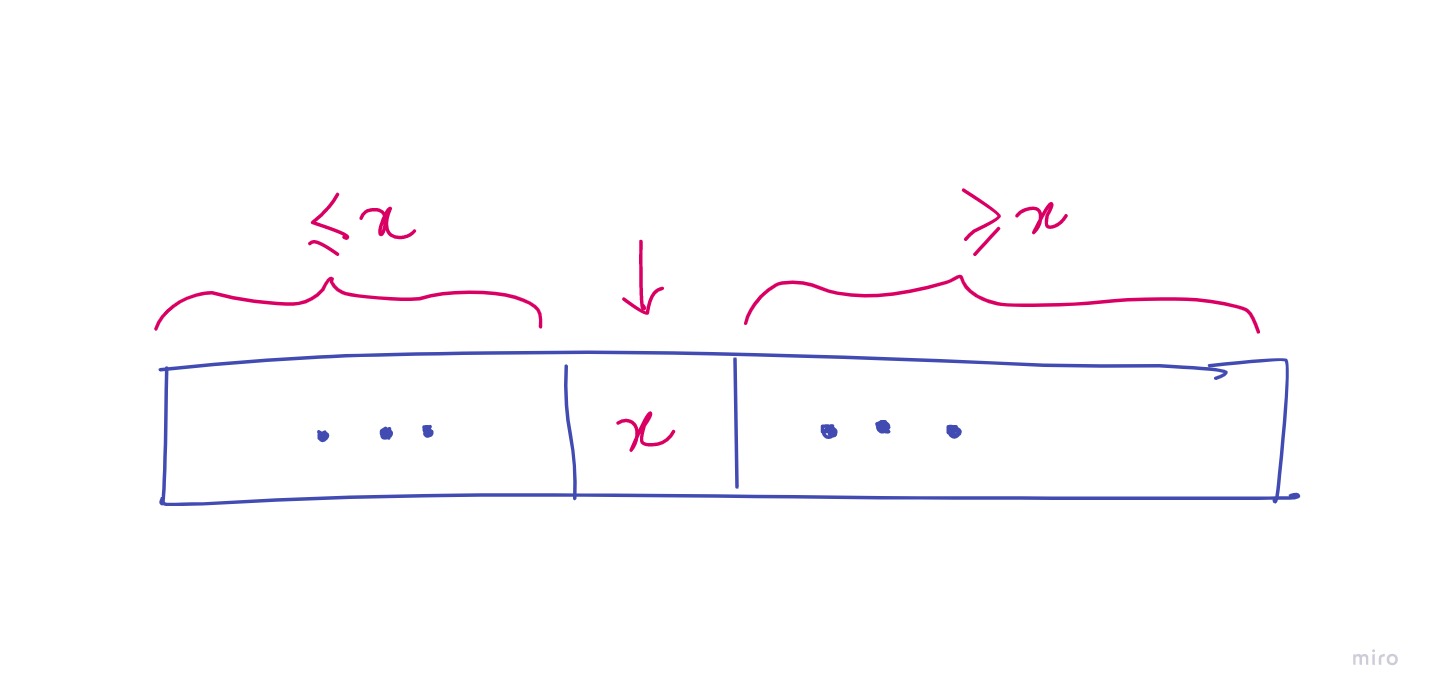 ≤ x
≥ x
... x ...
miro